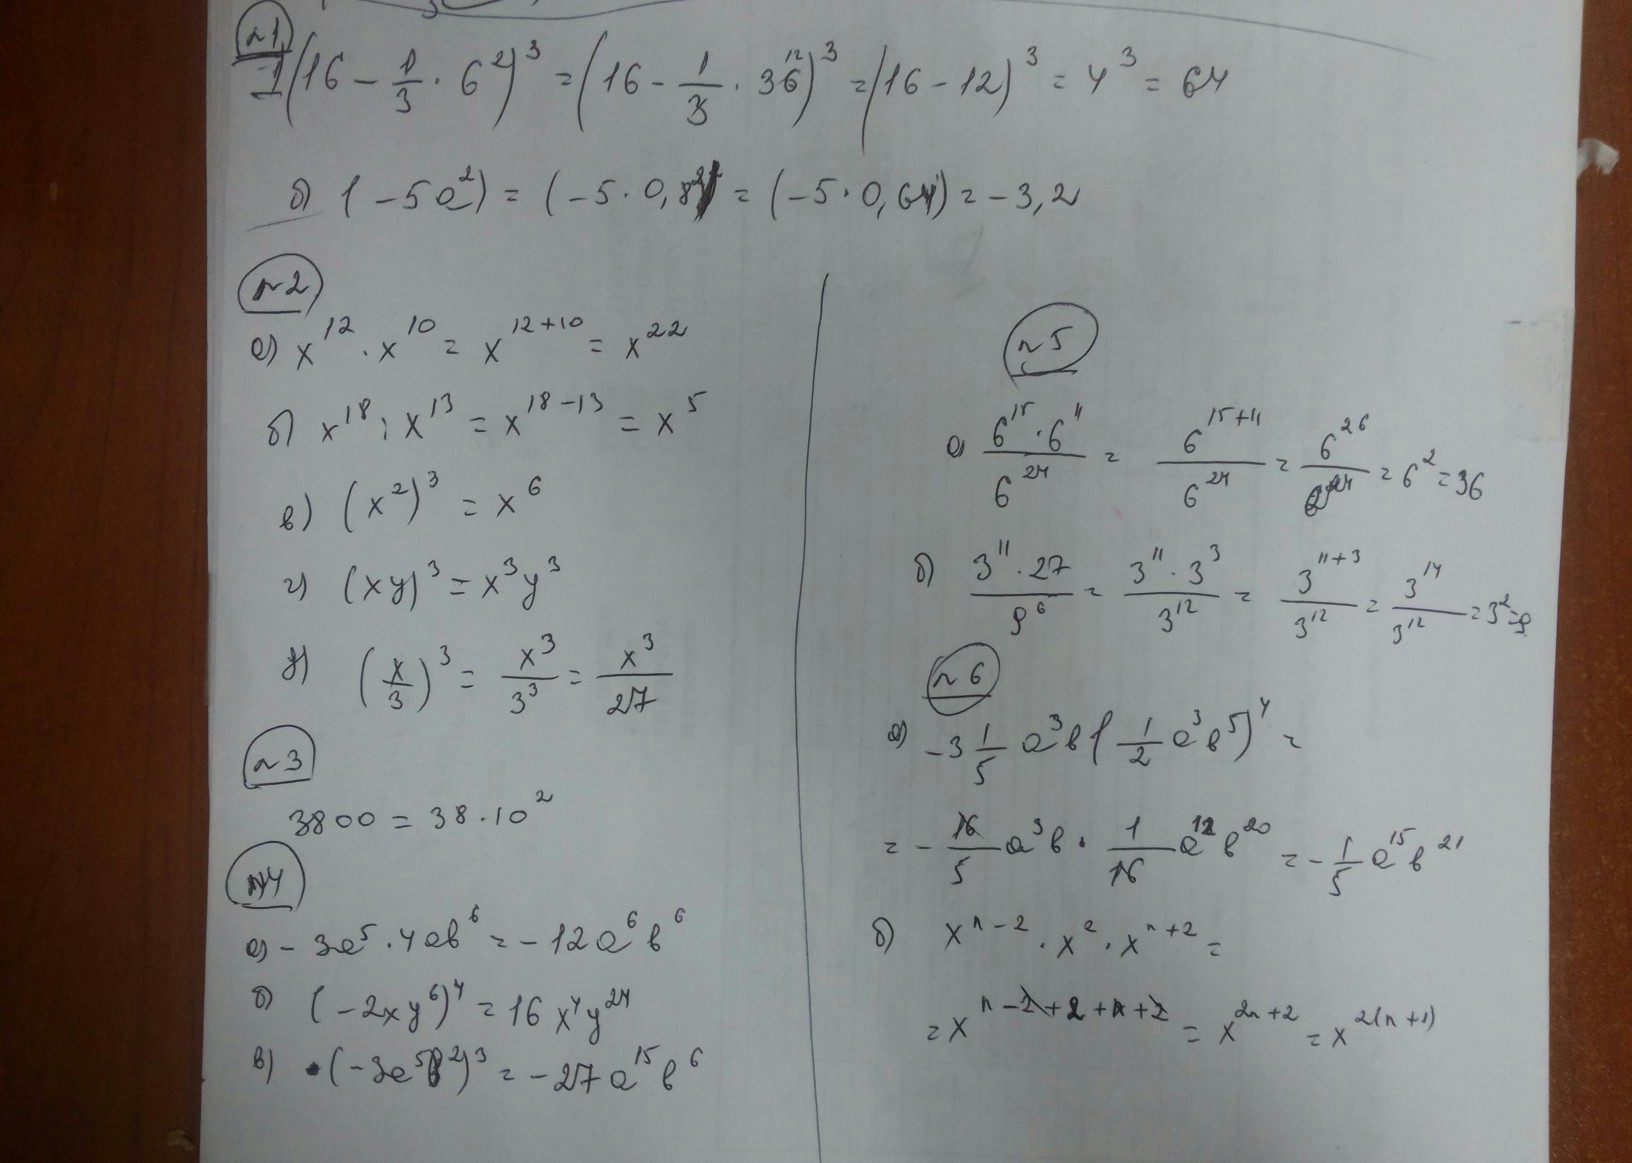 n1
(16 - 1/3 · 6²)³ = (16 - 1/3 · 36)³ = (16 - 12)³ = 4³ = 64
12
б) (-5a²) = (-5 · 0,8² = (-5 · 0,64) = -3,2
n2
a) x¹² · x¹⁰ = x¹²⁺¹⁰ = x²²
б) x¹⁸ : x¹³ = x¹⁸⁻¹³ = x⁵
в) (x²)³ = x⁶
г) (xy)³ = x³y³
д) (x/3)³ = x³/3³ = x³/27
n3
3800 = 38 · 10²
n4
a) -3a⁵ · 4ab⁶ = -12a⁶b⁶
б) (-2xy⁶)⁴ = 16x⁴y²⁴
в) (-3a⁵b²)³ = -27a¹⁵b⁶
n5
a) 6¹⁵ · 6¹¹ / 6²⁴ = 6¹⁵⁺¹¹ / 6²⁴ = 6²⁶ / 6²⁴ = 6² = 36
б) 3¹¹ · 27 / 9⁶ = 3¹¹ · 3³ / 3¹² = 3¹¹⁺³ / 3¹² = 3¹⁴ / 3¹² = 3² = 9
n6
a) -3 1/5 a³b (1/2 a³b⁵)⁴ =
= - 16/5 a³b · 1/16 a¹²b²⁰ = - 1/5 a¹⁵b²¹
б) xⁿ⁻² · x² · xⁿ⁺² =
= xⁿ⁻²⁺²⁺ⁿ⁺² = x²ⁿ⁺² = x²⁽ⁿ⁺¹⁾